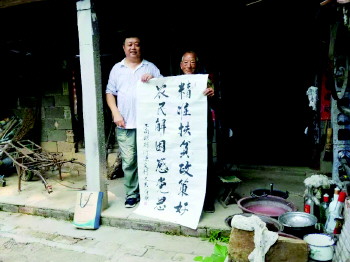 精准扶贫政策好
农民解困感党恩